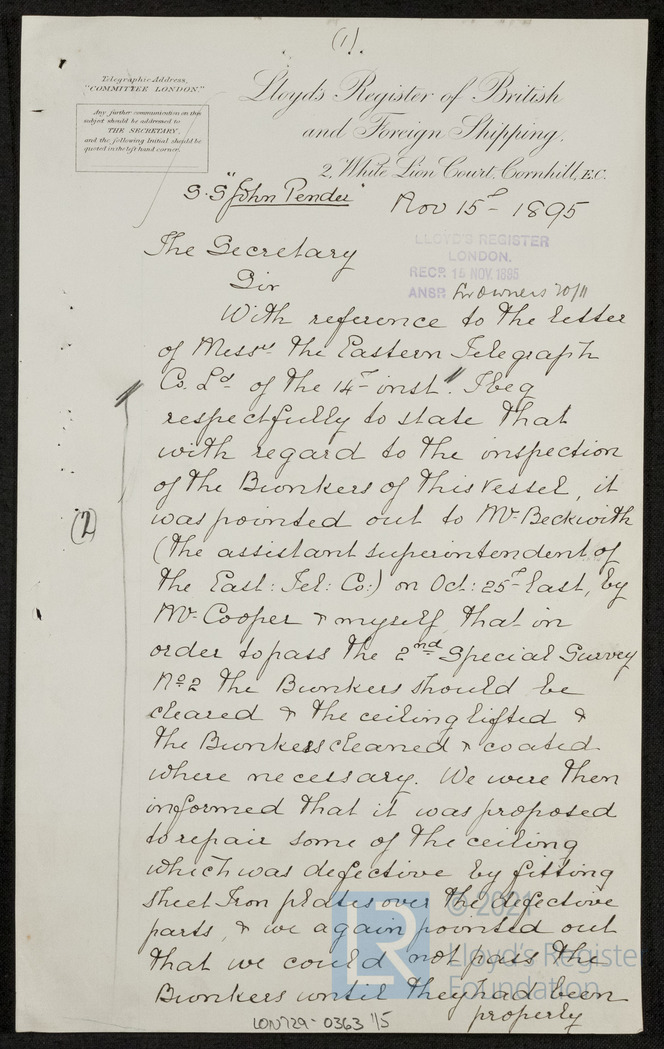 (1).
Telegraphic Address,
"COMMITTEE LONDON."
Any further communication on this
subject should be addressed to
THE SECRETARY,
and the following Initial should be
quoted in the left hand corner.
Lloyds Register of British
and Foreign Shipping,
2, White Lion Court, Cornhill, E.C.
S.S "John Pender"
Nov 15th - 1895
LLOYD'S REGISTER
LONDON.
RECD. 15 NOV. 1895
ANSD. for owners 20/11
The Secretary
Sir
With reference to the letter
of Messrs the Eastern Telegraph
Co. Ld. of the 14th inst. I beg
respectfully to state that
with regard to the inspection
of the Bunkers of this vessel, it
was pointed out to Mr Beckwith
(the assistant superintendent of
the East: Tel: Co:) on Oct: 25th last, by
Mr Cooper & myself, that in
order to pass the 2nd Special Survey
No 2 the Bunkers should be
cleared & the ceiling lifted &
the Bunkers cleaned & coated
where necessary. We were then
informed that it was proposed
to repair some of the ceiling
which was defective by fitting
sheet Iron plates over the defective
parts, & we again pointed out
that we could not pass the
Bunkers until they had been
properly
(2)
LR
© 2021
Lloyd's Register
Foundation
LON729-0363 1/5